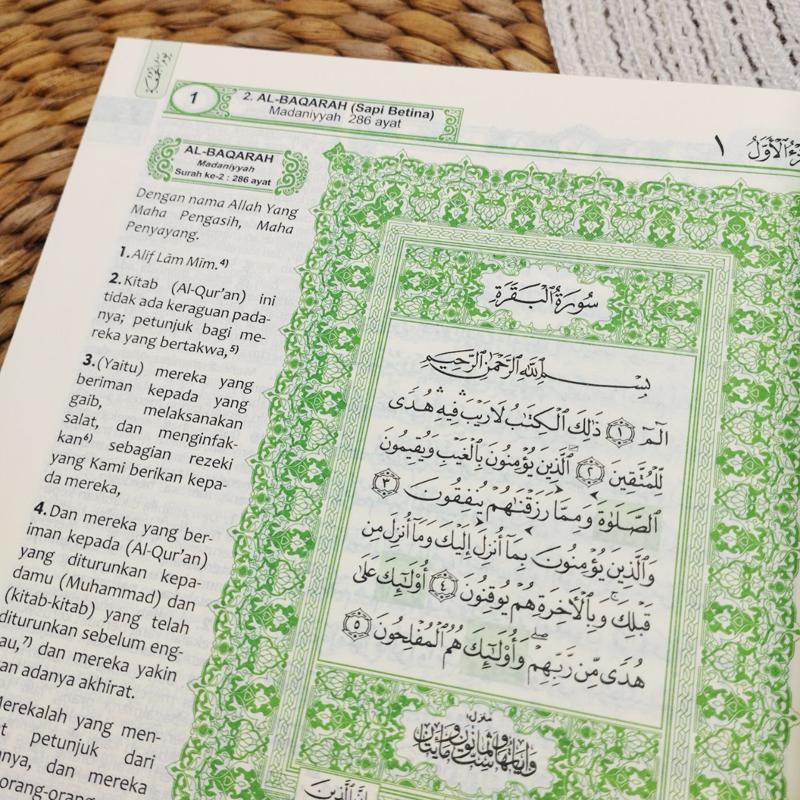 1
2. AL-BAQARAH (Sapi Betina)
Madaniyyah 286 ayat
١
الأَوَّلُ
AL-BAQARAH
Madaniyyah
Surah ke-2 : 286 ayat
Dengan nama Allah Yang
Maha Pengasih, Maha
Penyayang.
1. Alif Lām Mīm.4)
2. Kitab (Al-Qur'an) ini
tidak ada keraguan pada-
nya; petunjuk bagi me-
reka yang bertakwa,5)
3. (Yaitu) mereka yang
beriman kepada yang
gaib, melaksanakan
salat, dan menginfak-
kan6) sebagian rezeki
yang Kami berikan kepa-
da mereka,
4. Dan mereka yang ber-
iman kepada (Al-Qur'an)
yang diturunkan kepa-
damu (Muhammad) dan
(kitab-kitab) yang telah
diturunkan sebelum eng-
au,7) dan mereka yakin
an adanya akhirat.
Merekalah yang men-
t petunjuk dari
nya, dan mereka
orang-orang
سُورَةُ ٱلْبَقَرَةِ
بِسْمِ ٱللَّهِ ٱلرَّحْمَٰنِ ٱلرَّحِيمِ
الٓمٓ ١ ذَٰلِكَ ٱلْكِتَٰبُ لَا رَيْبَ ۛ فِيهِ ۛ هُدًى
لِّلْمُتَّقِينَ ٢ ٱلَّذِينَ يُؤْمِنُونَ بِٱلْغَيْبِ وَيُقِيمُونَ
ٱلصَّلَوٰةَ وَمِمَّا رَزَقْنَٰهُمْ يُنفِقُونَ ٣
وَٱلَّذِينَ يُؤْمِنُونَ بِمَآ أُنزِلَ إِلَيْكَ وَمَآ أُنزِلَ مِن
قَبْلِكَ وَبِٱلْءَاخِرَةِ هُمْ يُوقِنُونَ ٤ أُو۟لَٰٓئِكَ عَلَىٰ
هُدًى مِّن رَّبِّهِمْ ۖ وَأُو۟لَٰٓئِكَ هُمُ ٱلْمُفْلِحُونَ ٥